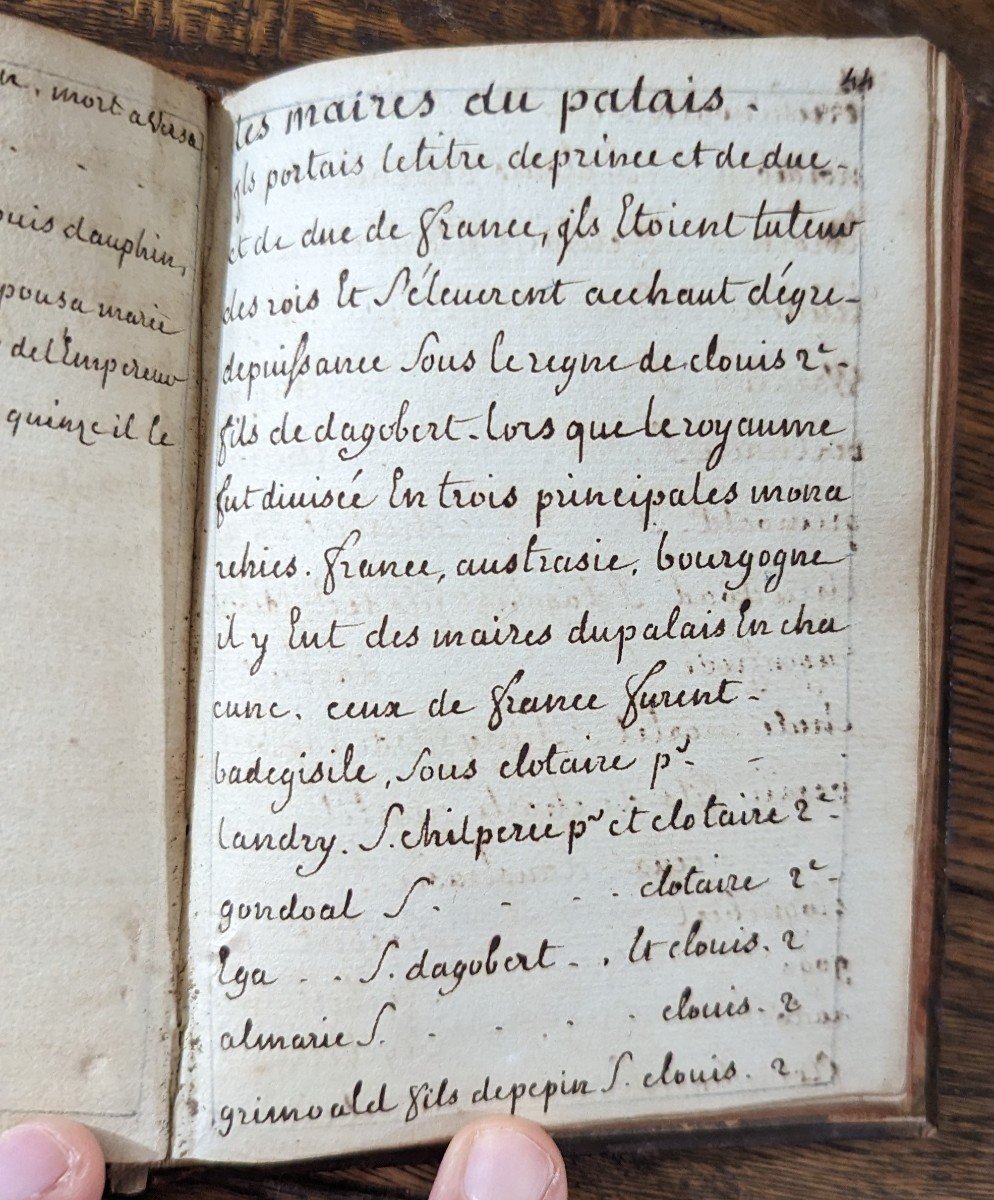 n. mort a Versa
ouis dauphin,
pousa marie
de l'Empereur
quinze il le
44
les maires du palais.
jls portais le titre de prince et de duc -
et de duc de france, jls Etoient tuteur
des rois Et s'éleverent acehaut dégre -
depuissance sous le regne de clouis 2e -
fils de dagobert - lors que le royaume
fut divisée En trois principales mona
rchies. france, austrasie, bourgogne
il y Eut des maires dupalais En cha
cune. ceux de france furent -
badegisile, sous clotaire pr -
landry. S. chilperic pr et clotaire 2e -
gondoal S . - - . . clotaire 2e -
Ega . . S. dagobert - . Et clouis. 2
almaric S. . . . . clouis. 2
grimoald fils depepin S. clouis. 2